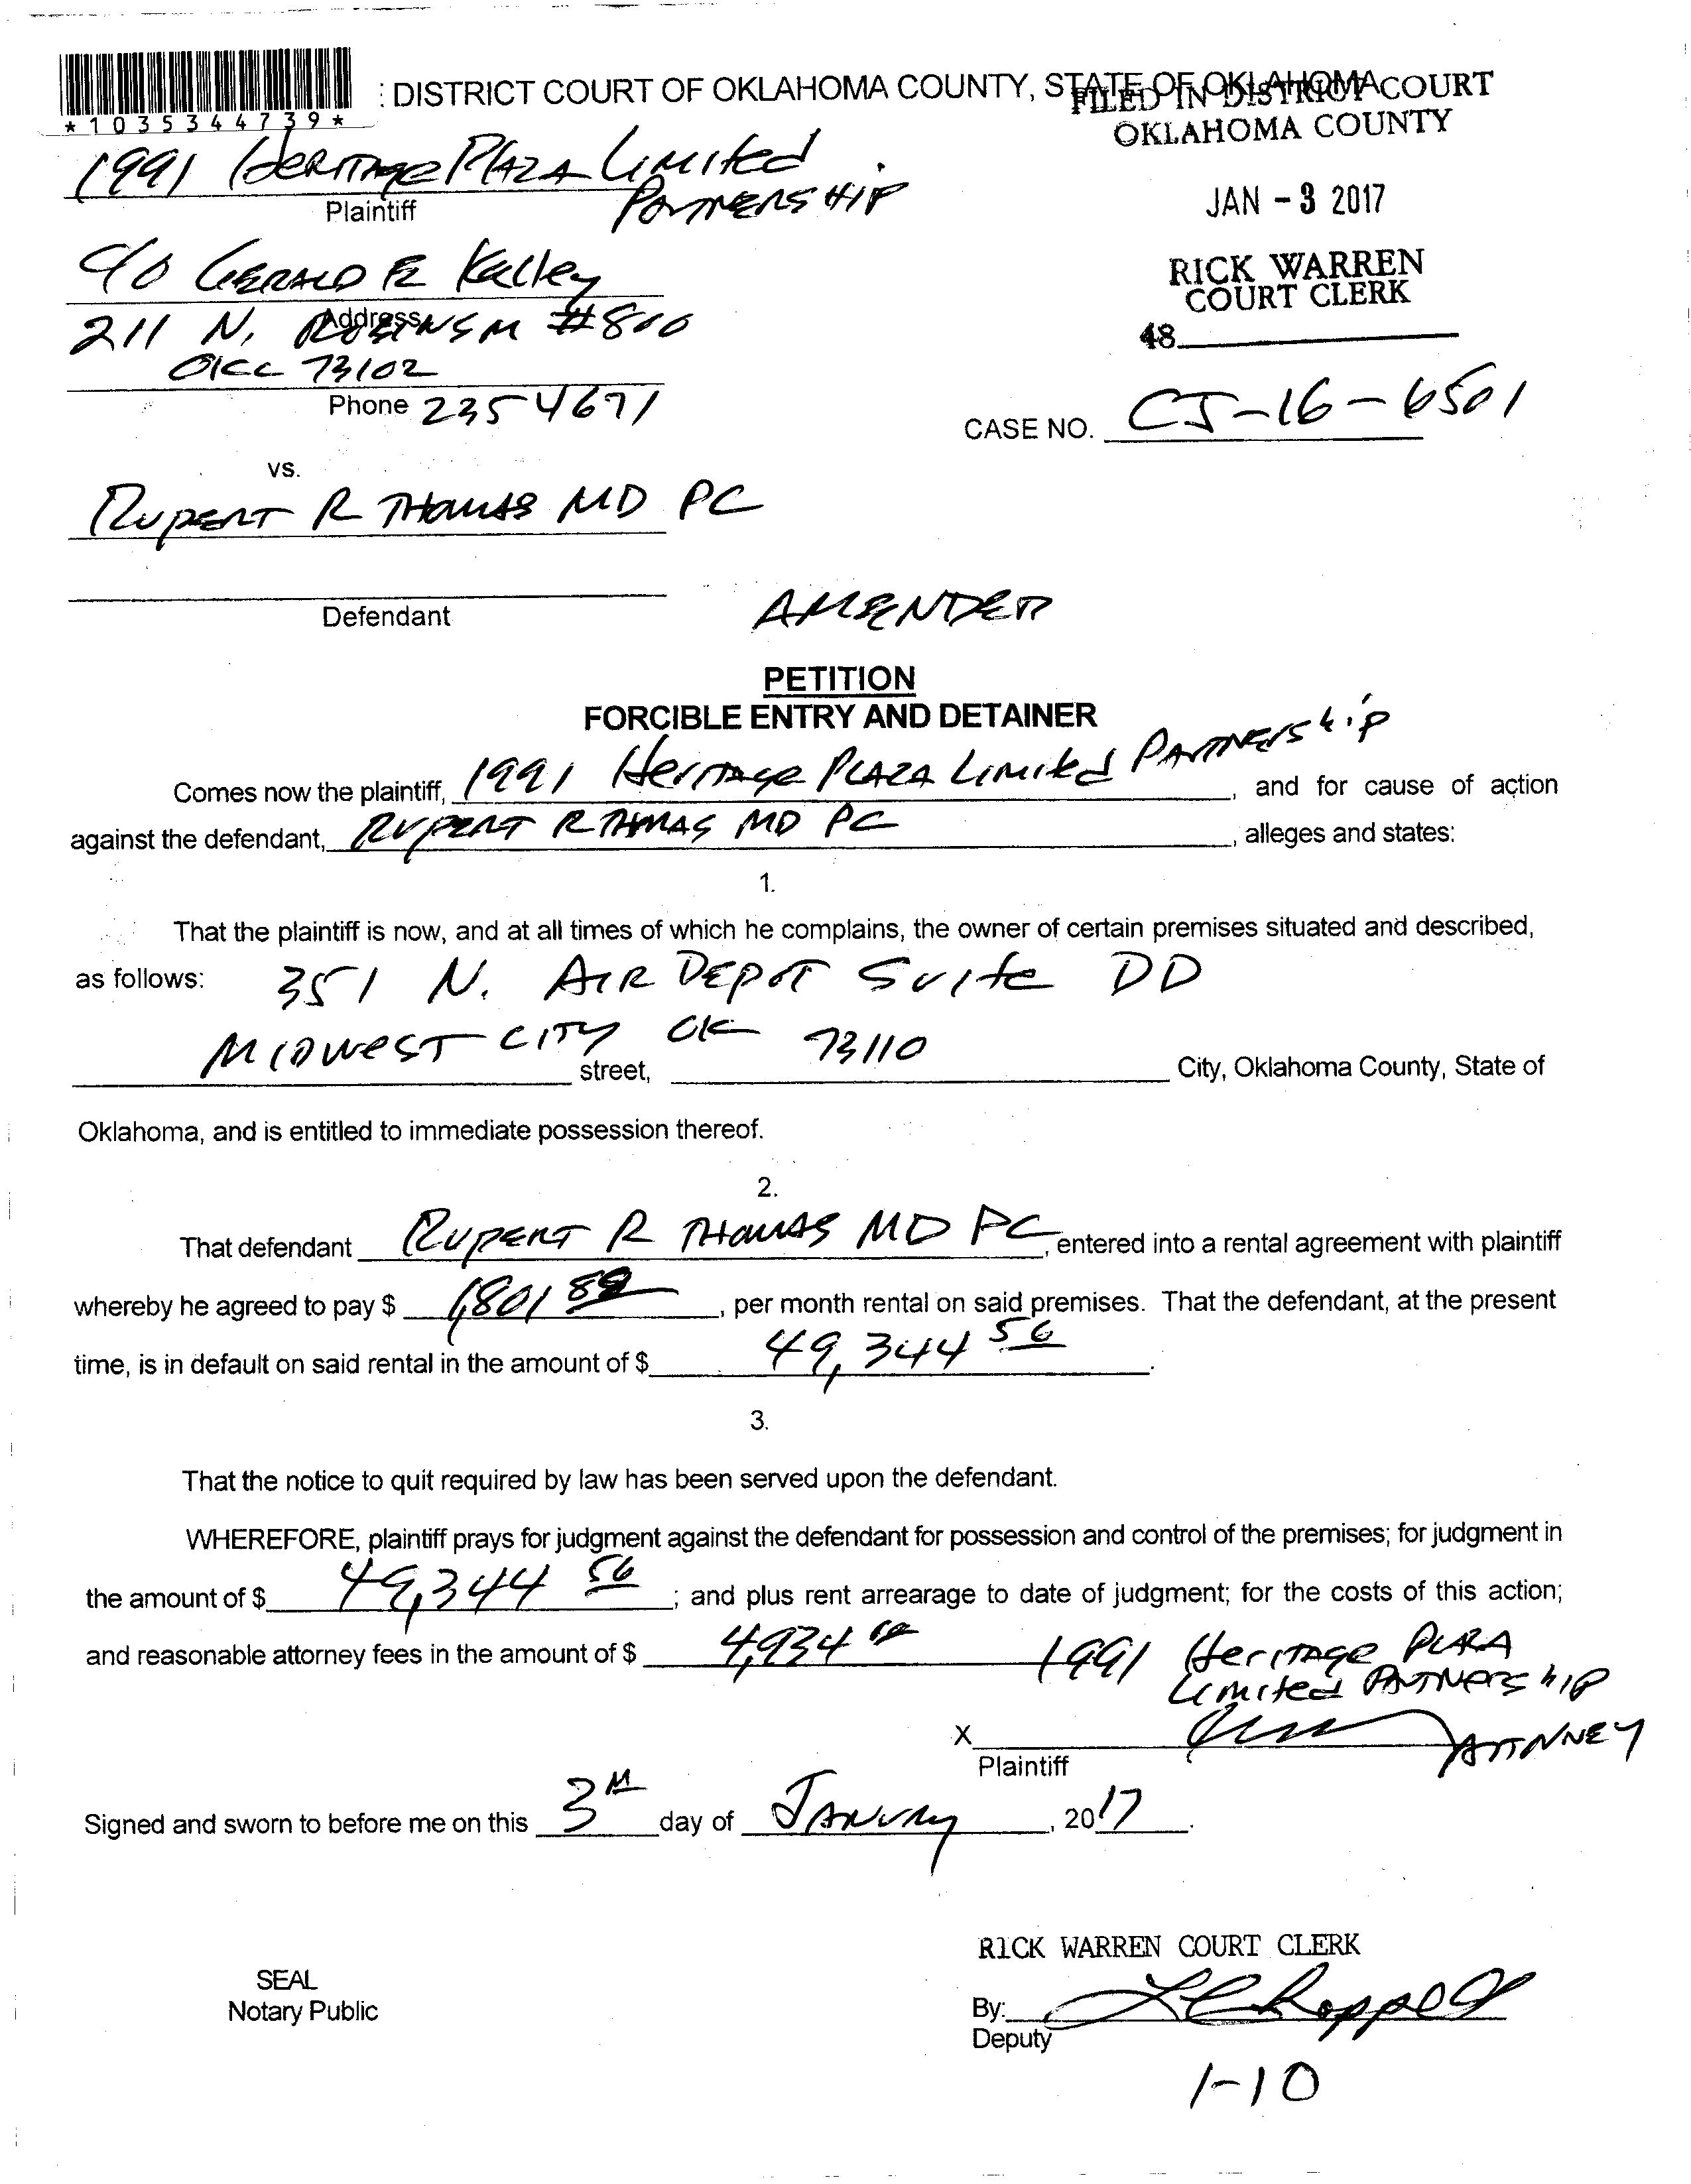 *1035344739*
: DISTRICT COURT OF OKLAHOMA COUNTY, STATE OF OKLAHOMA
FILED IN DISTRICT COURT
OKLAHOMA COUNTY
JAN - 3 2017
RICK WARREN
COURT CLERK
48
1991 Heritage Plaza Limited
Partnership
Plaintiff
c/o Gerald E Kelley
Address
211 N. Robinson #800
OKC 73102
Phone 235 4671
CASE NO. CJ-16-6501
vs.
Rupert R Thomas MD PC
Defendant
AMENDED
PETITION
FORCIBLE ENTRY AND DETAINER
Comes now the plaintiff, 1991 Heritage Plaza Limited Partnership, and for cause of action
against the defendant, Rupert R Thomas MD PC, alleges and states:
1.
That the plaintiff is now, and at all times of which he complains, the owner of certain premises situated and described,
as follows: 351 N. Air Depot Suite DD
Midwest City OK 73110
street, City, Oklahoma County, State of
Oklahoma, and is entitled to immediate possession thereof.
2.
That defendant Rupert R Thomas MD PC, entered into a rental agreement with plaintiff
whereby he agreed to pay $ 1,801, per month rental on said premises. That the defendant, at the present
time, is in default on said rental in the amount of $ 49,344 56.
3.
That the notice to quit required by law has been served upon the defendant.
WHEREFORE, plaintiff prays for judgment against the defendant for possession and control of the premises; for judgment in
the amount of $ 49,344 56; and plus rent arrearage to date of judgment; for the costs of this action;
and reasonable attorney fees in the amount of $ 4,934
1991 Heritage Plaza
Limited Partnership
X Attorney
Plaintiff
Signed and sworn to before me on this 3rd day of January, 2017.
RICK WARREN COURT CLERK
SEAL
Notary Public
By:
Deputy
1-10